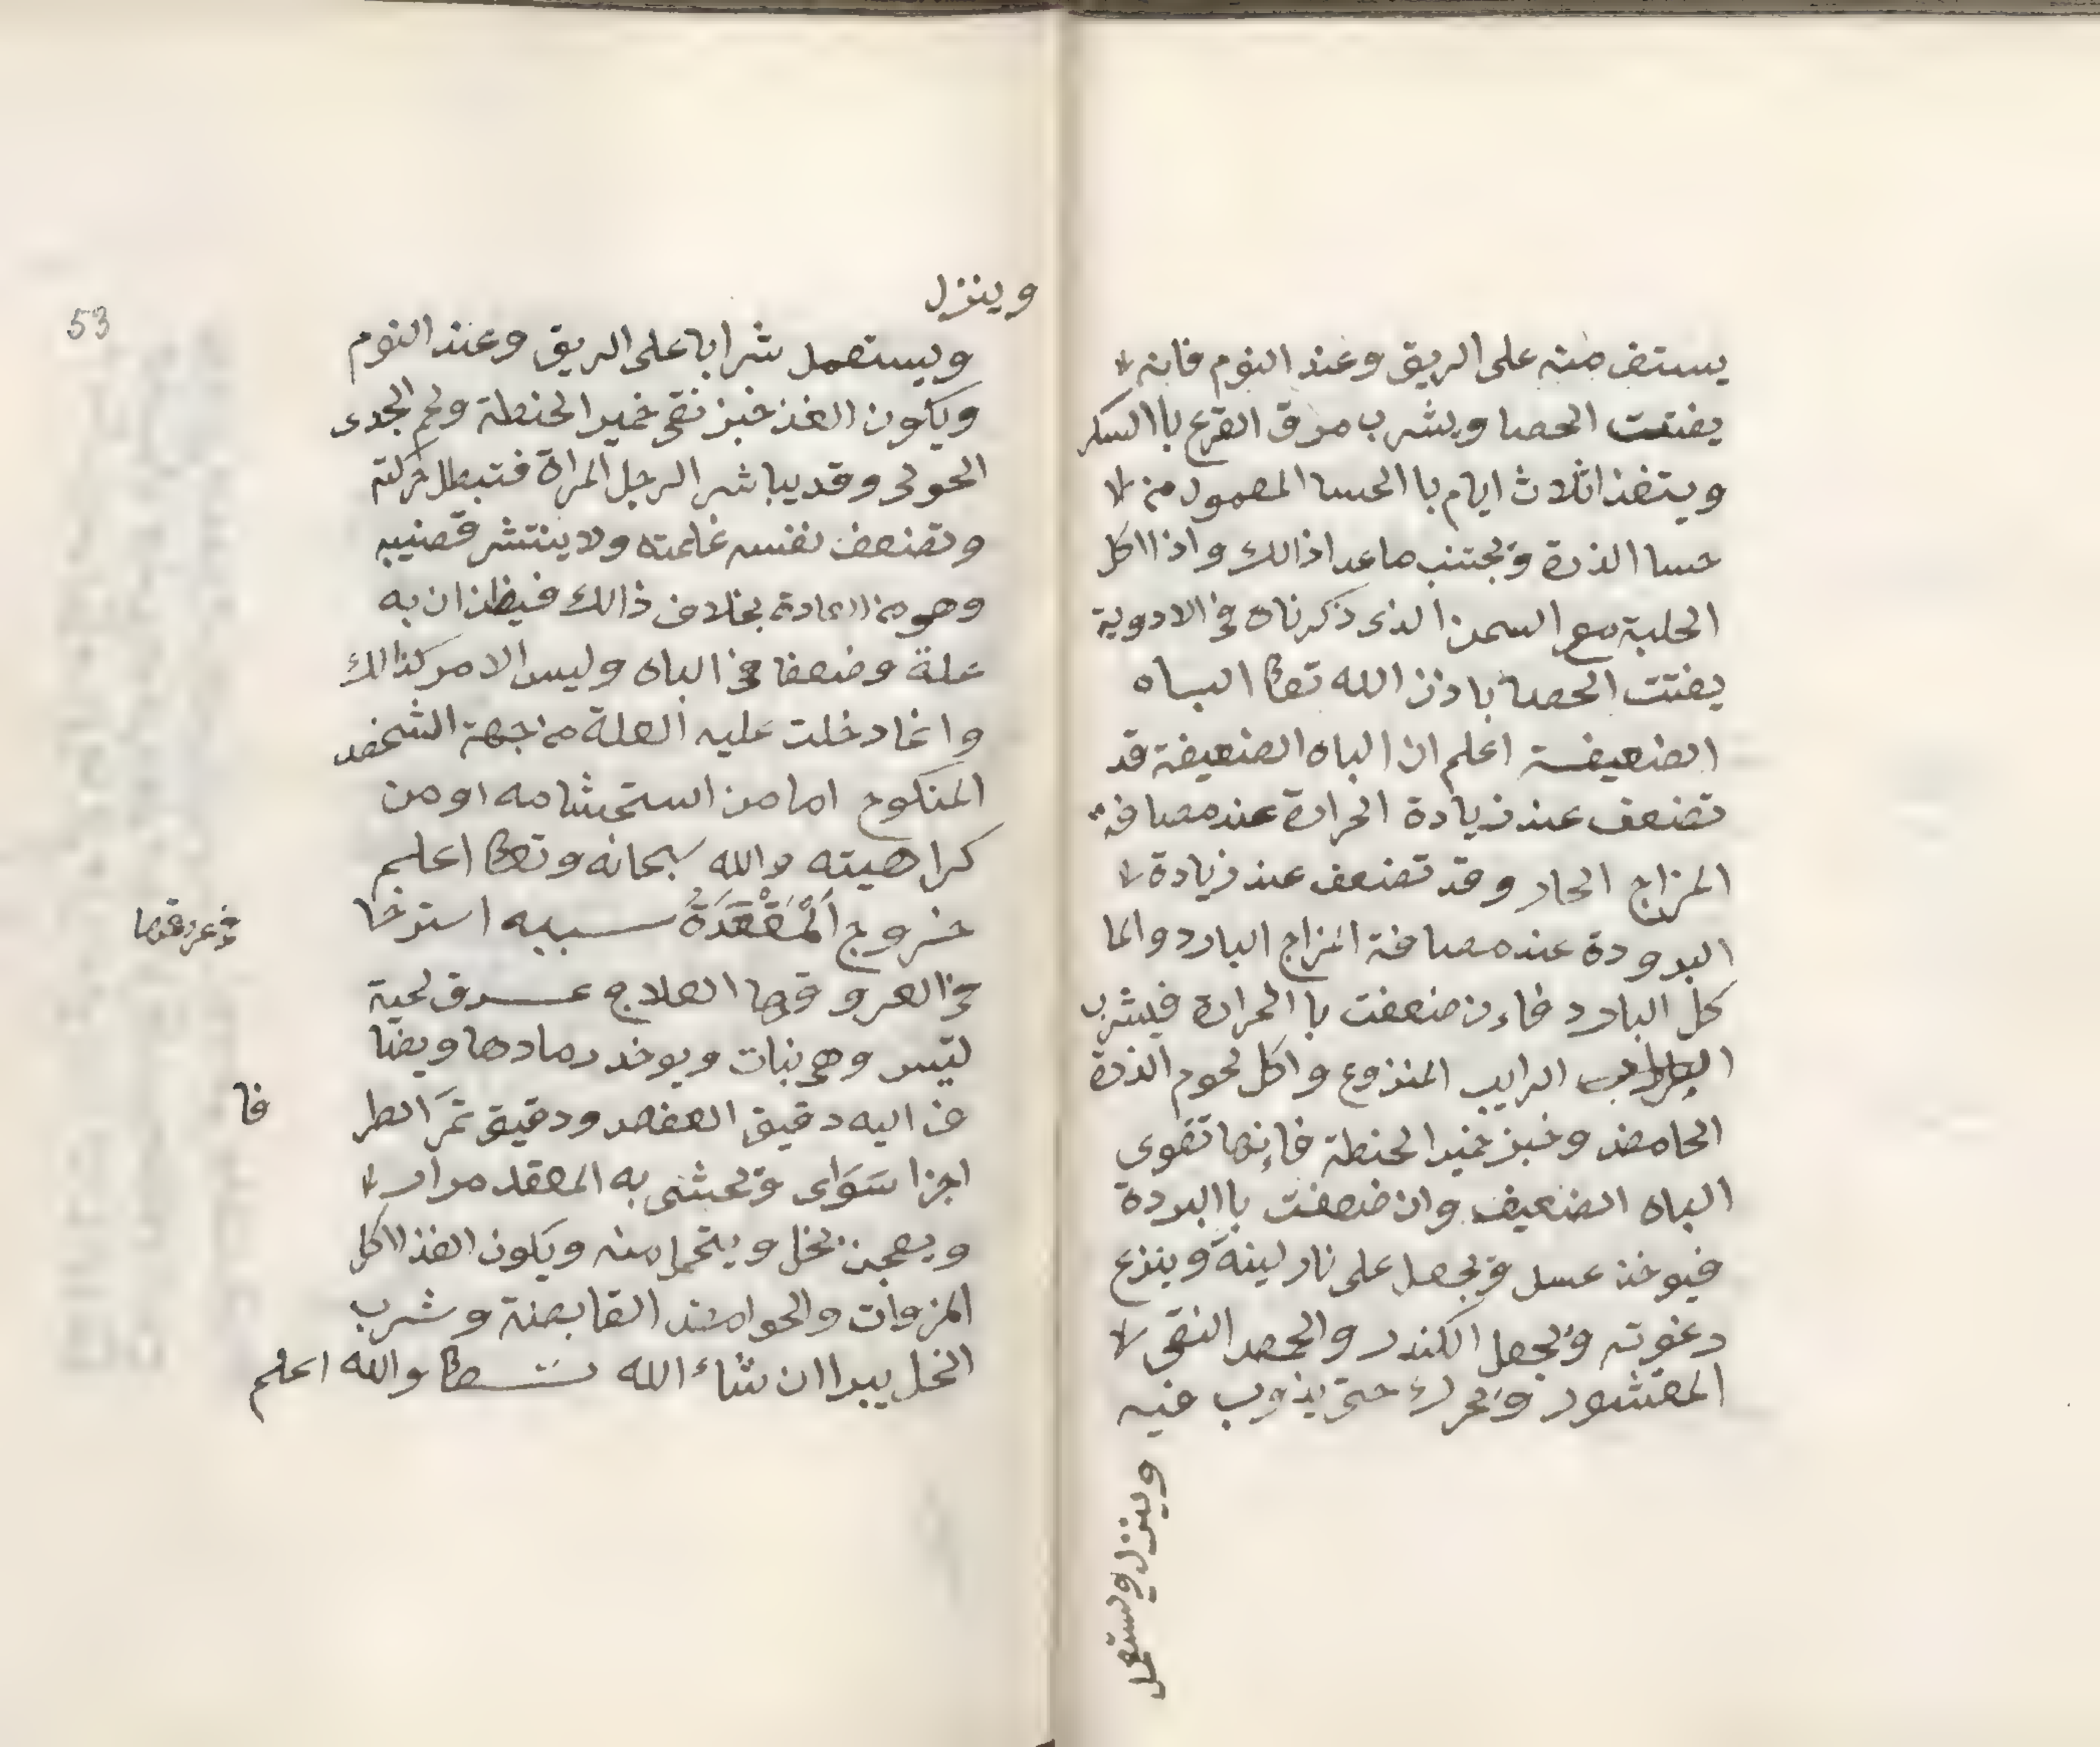 يستف منه على الريق وعند النوم فانه
يفتت الحصا ويشرب مرق القرع باالسكر
ويتغذا ثلاث ايام باالحسا المعمول من
حسا الذرة ويجتنب ماعدا ذالك واذا اكل
الحلبة مع السمن الذى ذكرناه في الادوية
يفتت الحصا باذن الله تعا الباه
الضعيفة اعلم ان الباه الضعيفة قد
تضعف عند زيادة الحرارة عند مصافة
المزاج الحار وقد تضعف عند زيادة
البرودة عند مصافة المزاج البارد والما
كل البارد فاءن ضعفت باالحرارة فيشرب
الرايب المنزوع واكل لحوم الذرة
الحامض وخبز خمير الحنطة فإنها تقوى
الباه الضعيف وان ضعفت باالبردة
فيوخذ عسل ويجعل على نار لينة وينزع
رغوته ويجعل الكندر والحمص النقى
المقشور ويحرك حتى يذوب فيه
وينزل ويستعمل
وينزل
53
ويستعمل شرابا على الريق وعند النوم
ويكون الغذ خبز نقى خمير الحنطة ولحم الجدى
الحولى وقد يباشر الرجل المراة فتبطل حركته
وتضعف نفسه غلمته ولا ينتشر قضيبه
وهو من العادة بخلاف ذالك فيظن ان به
علة وضعفا في الباه وليس الامر كذالك
وانما دخلت عليه العلة من جهة الشخص
المنكوح اما من استحشامه او من
كراهيته والله سبحانه وتعا اعلم
خروج اَلْمَقْعَدَةُ سببه استرخا
في العروقها العلاج عرق لحية
ليتيس وهي نبات ويوخد رمادها ويضا
ف اليه دقيق العفص ودقيق ثمَر الطر
اجزا سَوَاى ويحشى به المقعد مرار
ويعجن بخل ويتحمل منه ويكون الغذا اكل
المزوات والحوامض القابضة وشرب
الخل يبرا ان شاء الله تعا والله اعلم
في عروقها
فا